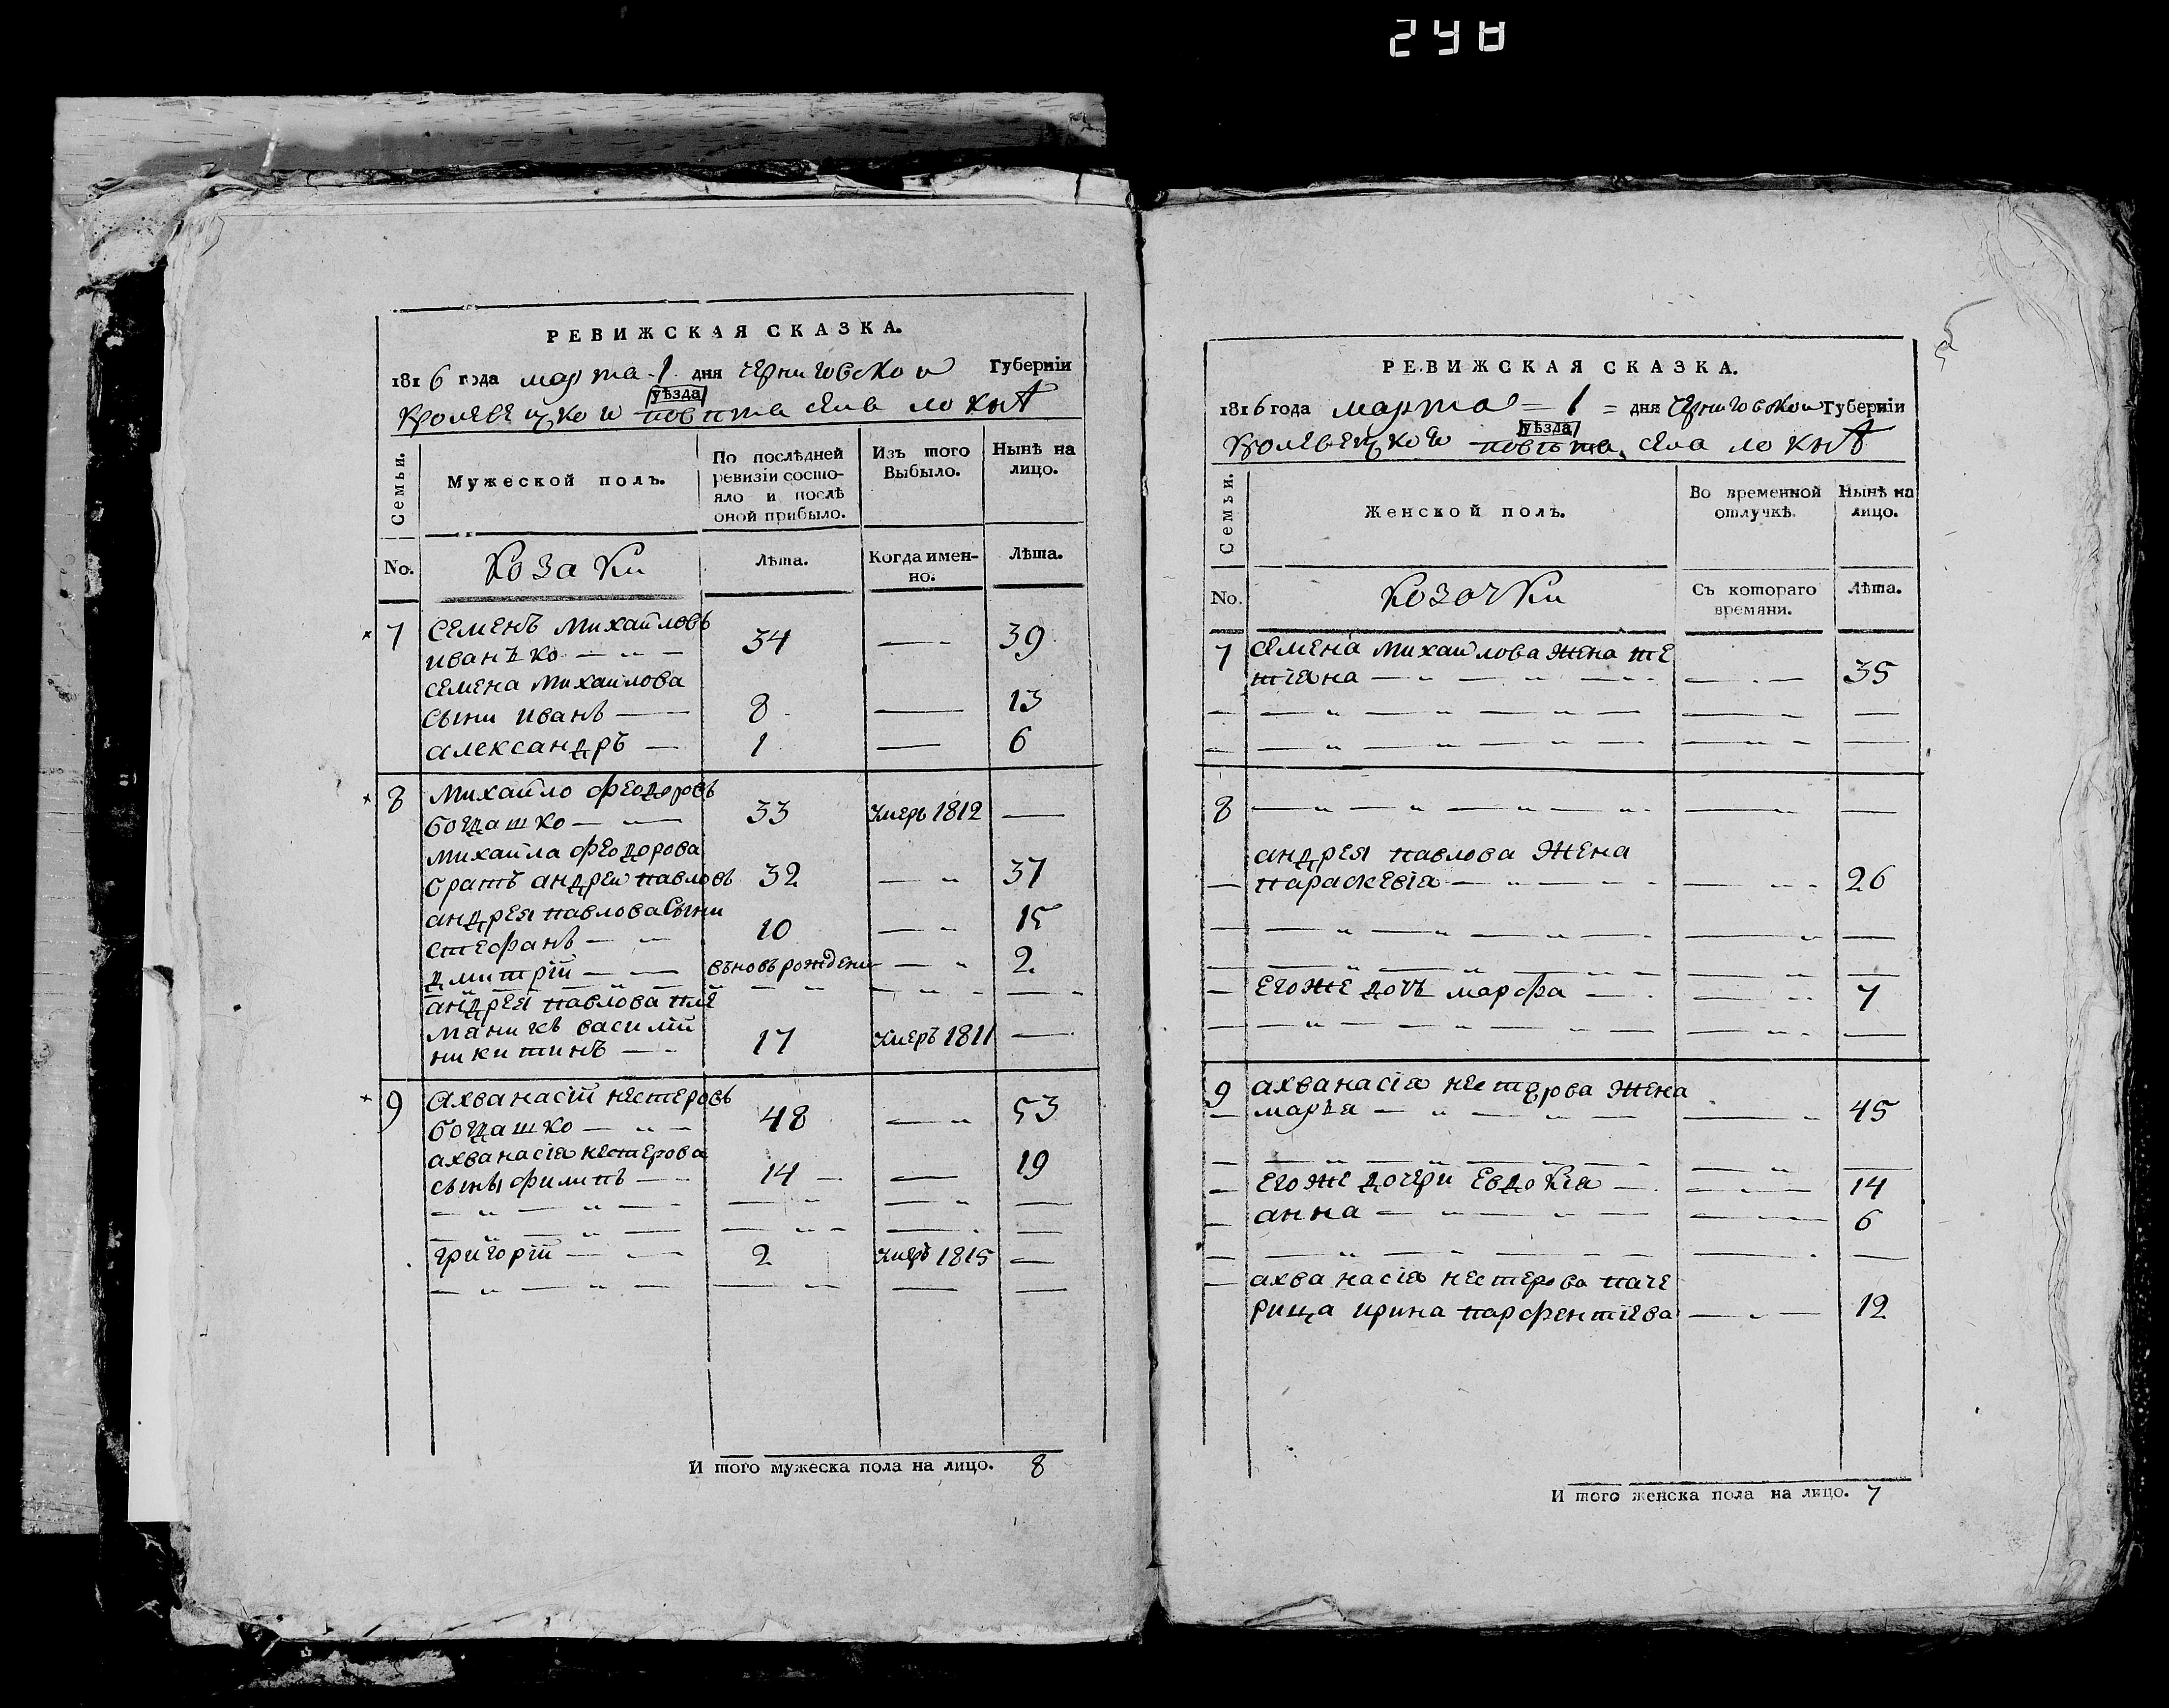 248
РЕВИЖСКАЯ СКАЗКА.
1816 года марта 1 дня черниговской Губернїи
уѣзда
кролевецкой повѣта села локнѣ
Семьи.
Мужеской полъ.
По послѣдней ревизїи состояло и послѣ оной прибыло.
Изъ того Выбыло.
Нынѣ на лицо.
No.
Козаки
Лѣта.
Когда именно.
Лѣта.
7 семенъ михайловъ
иванъко 34 39
семена михаилова
сыни иванъ 8 13
александръ 1 6
8 михайло феодоровъ
богдашко 33 умеръ 1812
михайла феодорова
братъ андрей павловъ 32 37
андрея павлова сыни
стефанъ 10 15
дмитрїй вьновь рожденн 2
андрея павлова пле
маникъ василїй
никитинъ 17 умеръ 1811
9 ахванасїй нестеровъ
богдашко 48 53
ахванасїя нестерова
сыны филипъ 14 19
григорїй 2 умеръ 1815
И того мужеска пола на лицо. 8
РЕВИЖСКАЯ СКАЗКА.
1816 года марта = 1 = дня черниговской Губернїи
уѣзда
кролевецкой повѣта села локнѣ
Семьи.
Женской полъ.
Во временной отлучкѣ.
Нынѣ на лицо.
No.
козачки
Съ котораго времяни.
Лѣта.
7 семена михайлова жена те
тїяна 35
8
андрея павлова жена
параскевїя 26
его же дочь марфа 7
9 ахванасїя нестерова жена
марья 45
его же дочери евдокїя 14
анна 6
ахванасїя нестерова паче
рица ирина парфентїева 12
И того женска пола на лицо. 7